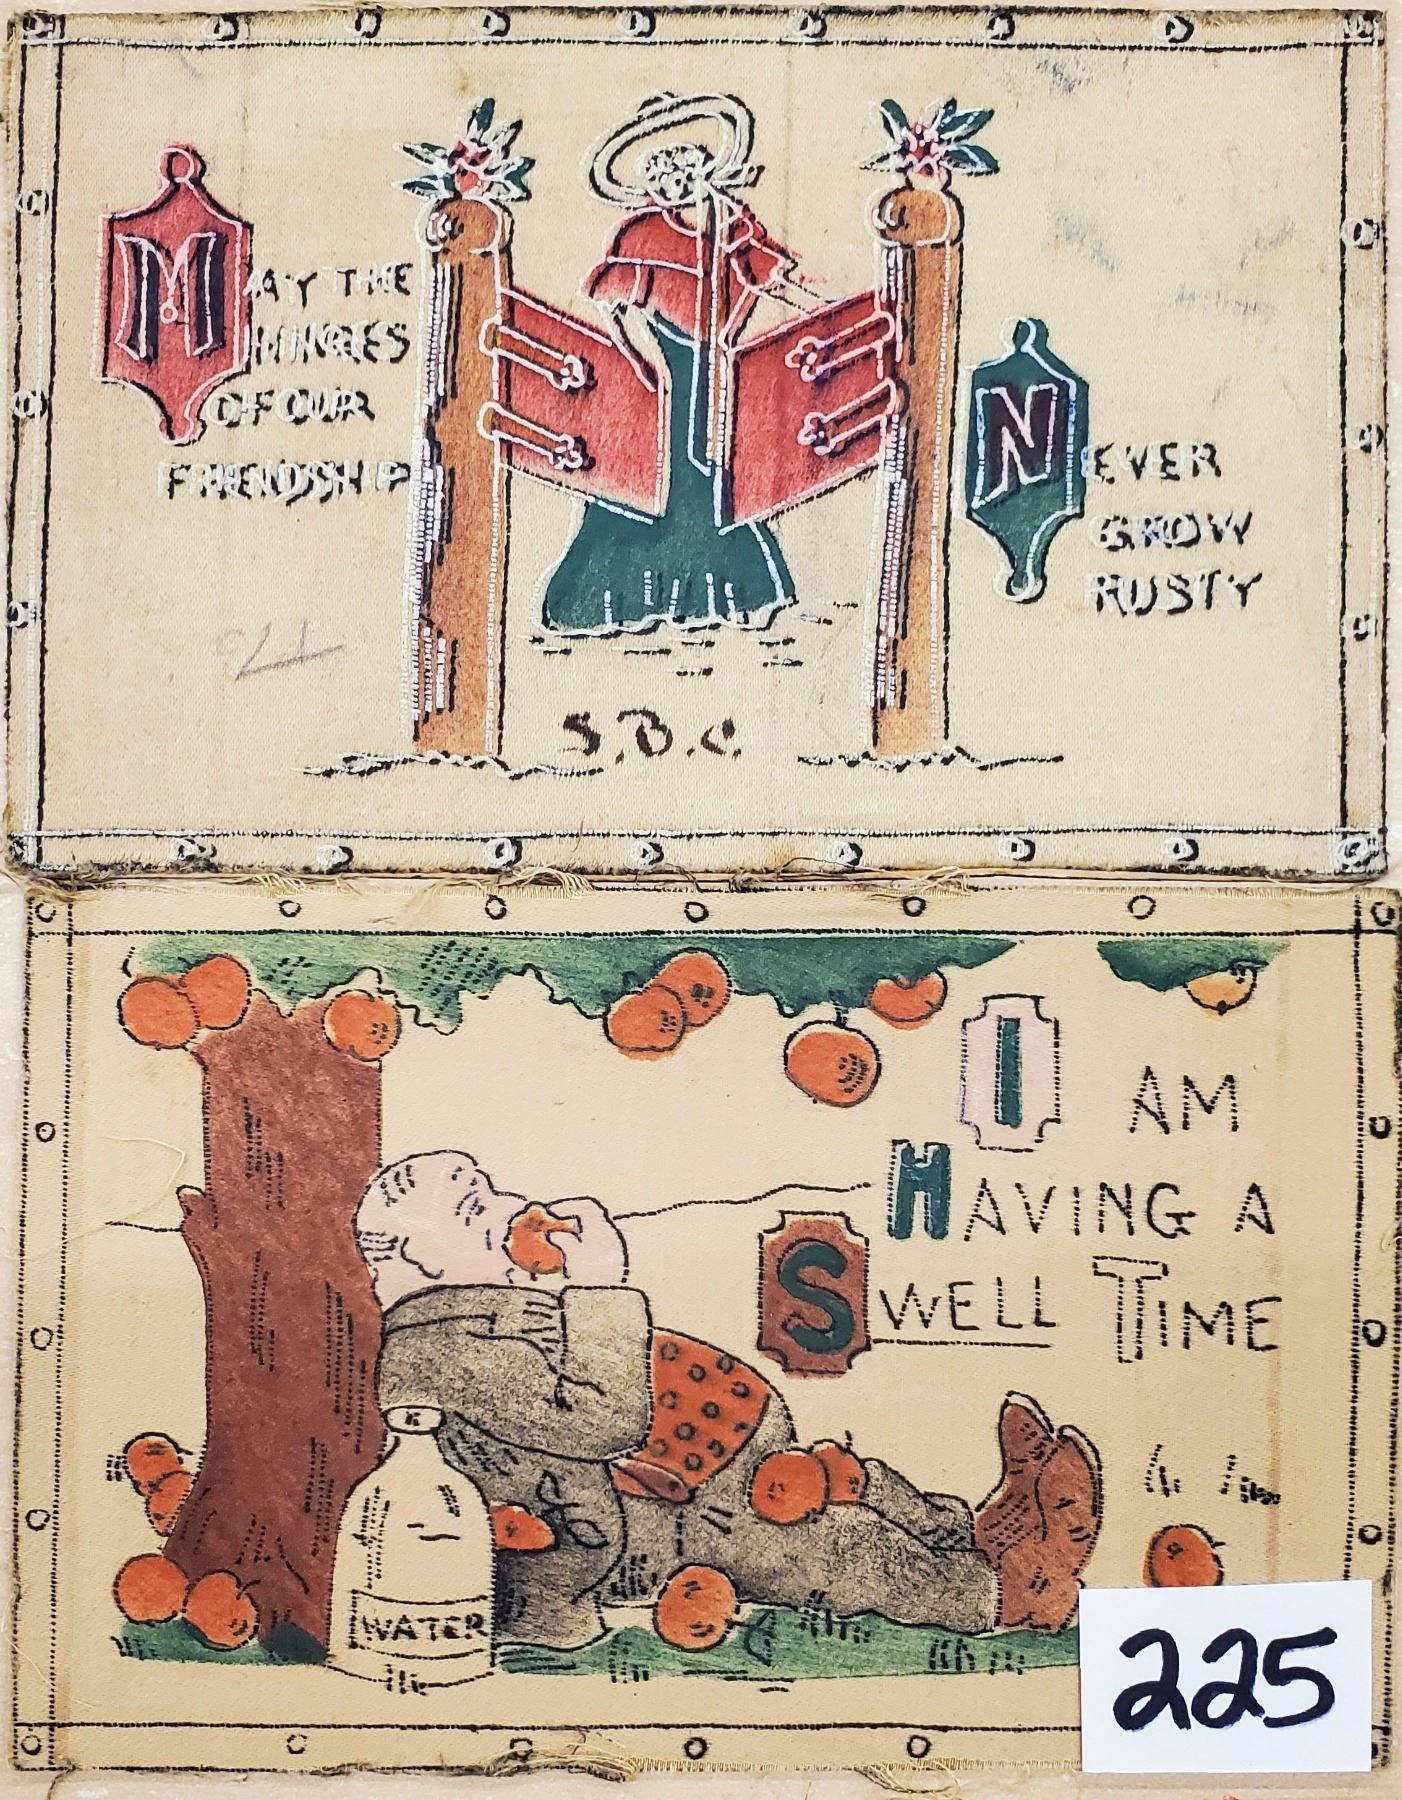 MAY THE
HINGES
OF OUR
FRIENDSHIP
NEVER
GROW
RUSTY
S.B.C.
I AM
HAVING A
SWELL TIME
WATER
225